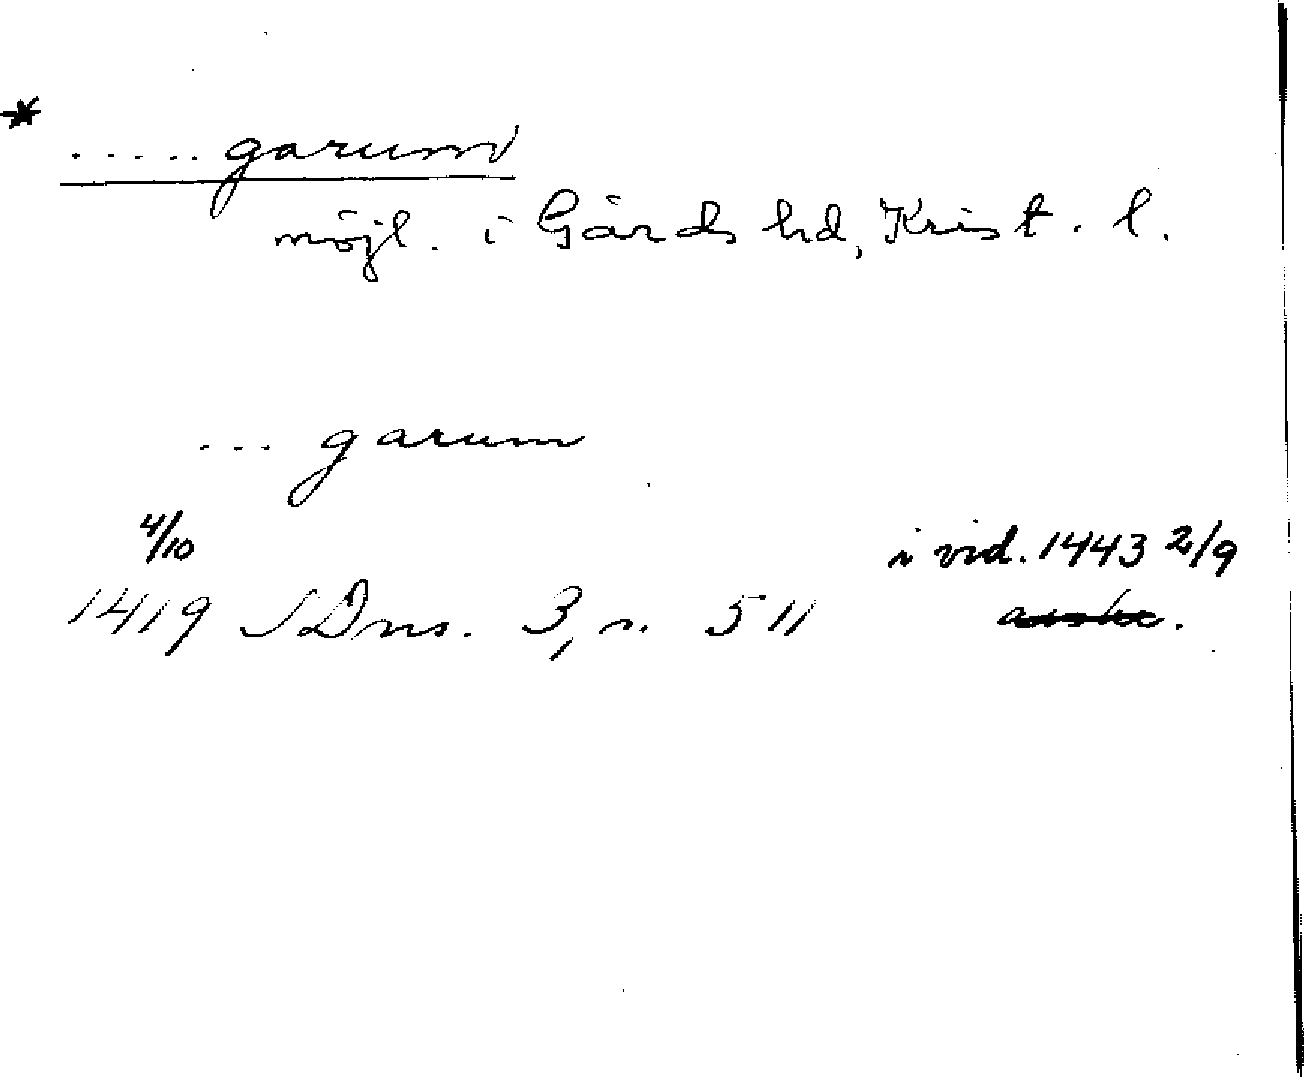 * ..... garum
möjl. i Gärds hd, Krist. l.
... garum
4/10 i vid. 1443 2/9
1419 SDns. 3, s. 511